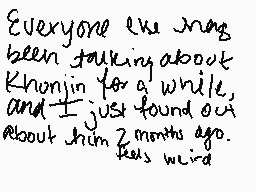 Everyone else has
been talking about
Khonjin for a while,
and I just found out
About him 2 months ago.
feels weird